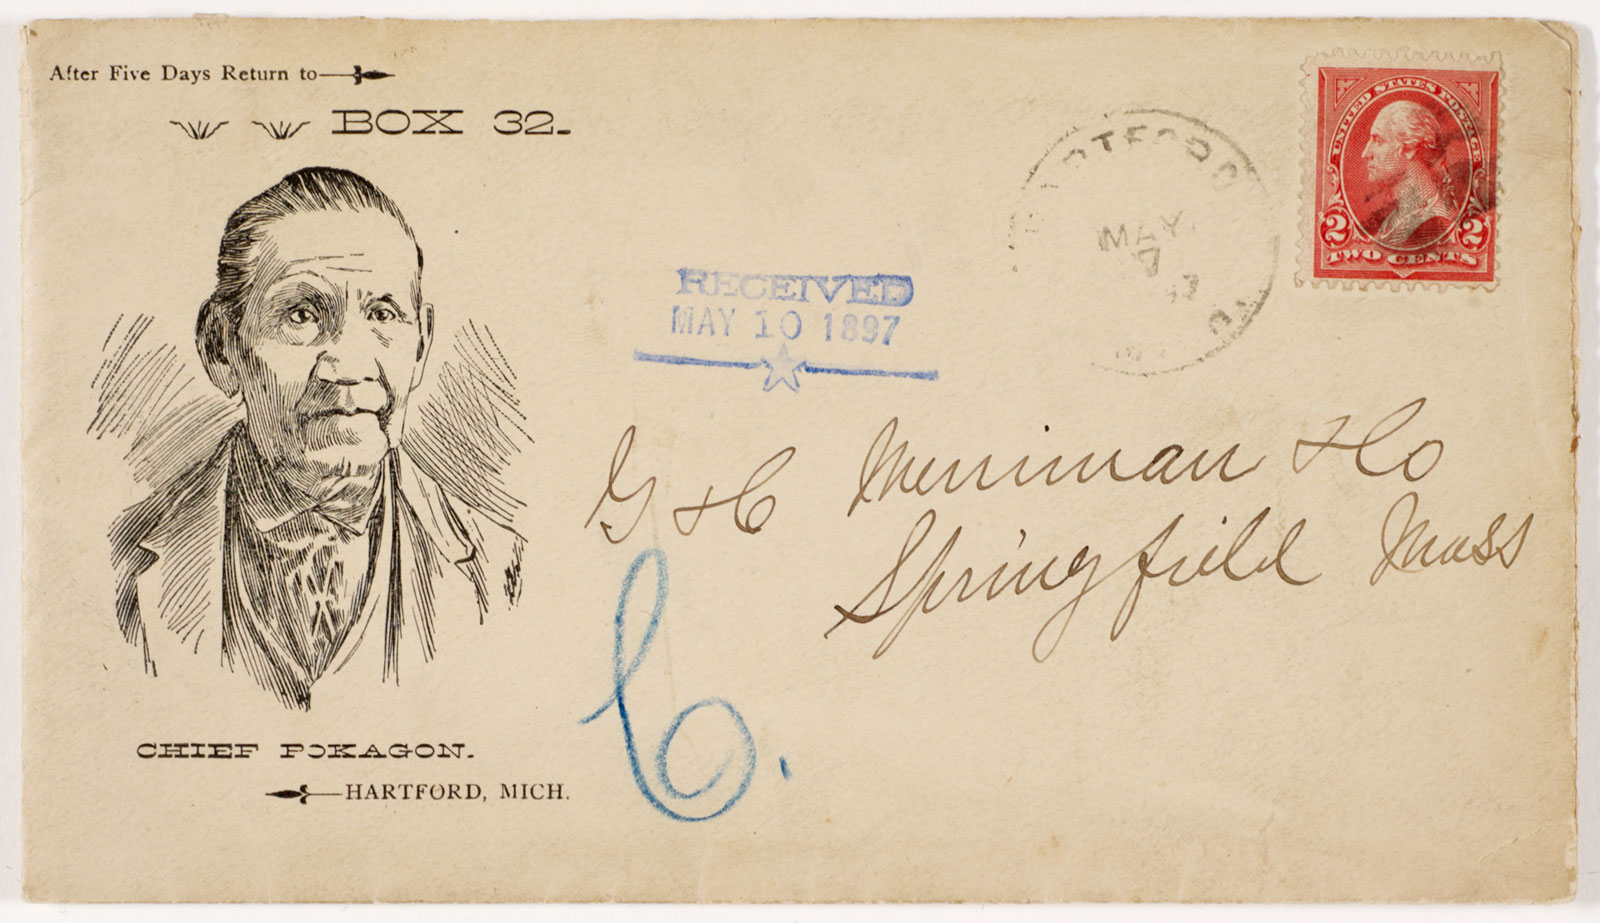 After Five Days Return to
BOX 32.
CHIEF POKAGON.
HARTFORD, MICH.
RECEIVED
MAY 10 1897
HARTFORD
MAY
7
UNITED STATES POSTAGE
2 2
TWO CENTS
G & C Merriman & Co
Springfield Mass
6.